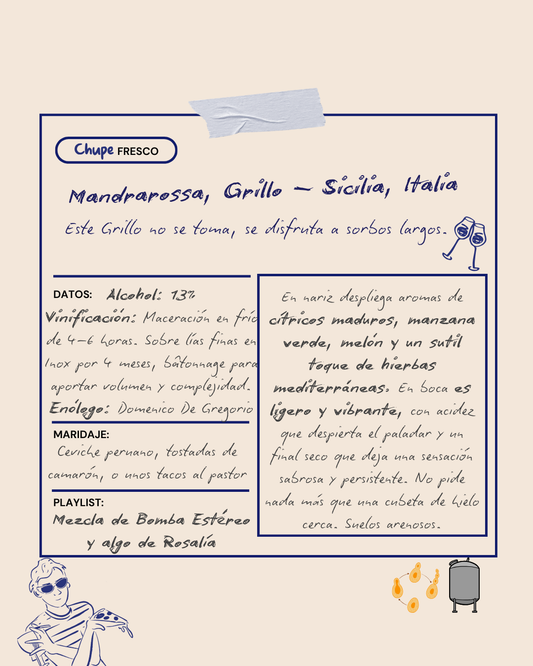 Chupe FRESCO
Mandrarossa, Grillo – Sicilia, Italia
Este Grillo no se toma, se disfruta a sorbos largos.
DATOS: Alcohol: 13%
Vinificación: Maceración en frío
de 4-6 horas. Sobre lías finas en
Inox por 4 meses, bâtonnage para
aportar volumen y complejidad.
Enólogo: Domenico De Gregorio
MARIDAJE:
Ceviche peruano, tostadas de
camarón, o unos tacos al pastor
PLAYLIST:
Mezcla de Bomba Estéreo
y algo de Rosalía
En nariz despliega aromas de
cítricos maduros, manzana
verde, melón y un sutil
toque de hierbas
mediterráneas. En boca es
ligero y vibrante, con acidez
que despierta el paladar y un
final seco que deja una sensación
sabrosa y persistente. No pide
nada más que una cubeta de hielo
cerca. Suelos arenosos.